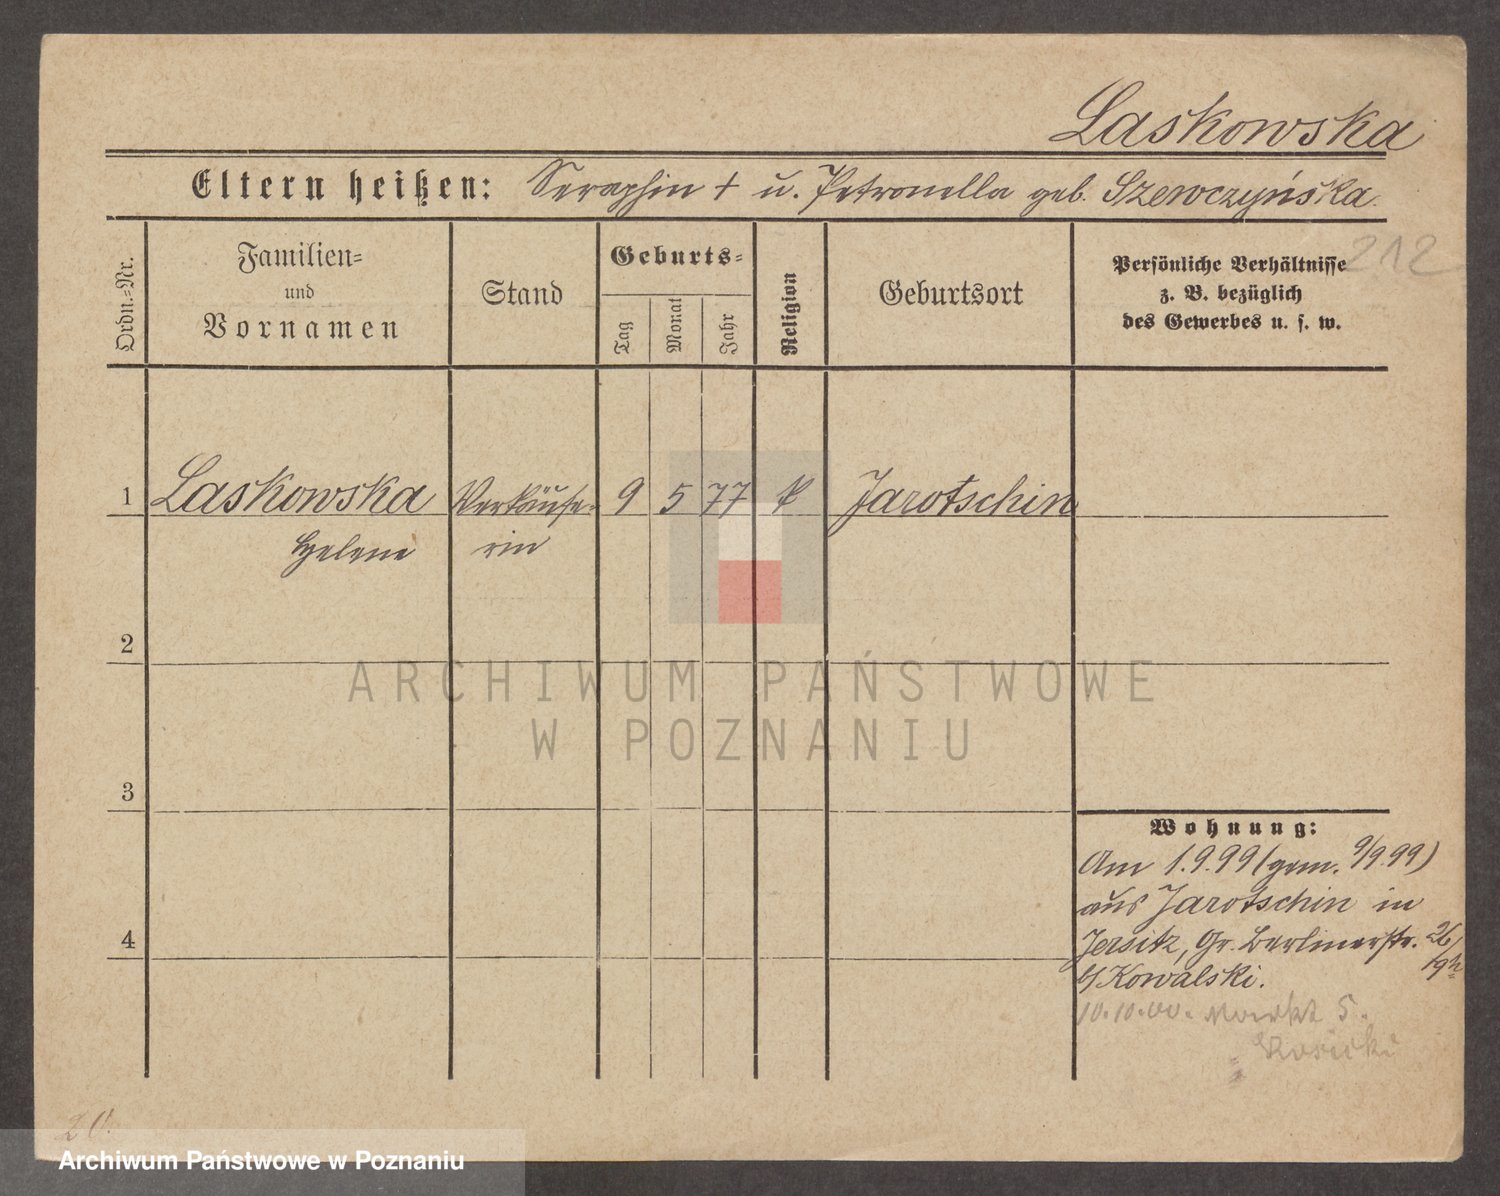 Laskowska
Eltern heißen: Seraphin † u. Petronella geb. Szewczyńska.
212
Ordn.=Nr.
Familien=
und
Vornamen
Stand
Geburts=
Tag
Monat
Jahr
Religion
Geburtsort
Persönliche Verhältnisse
z. B. bezüglich
des Gewerbes u. s. w.
1 Laskowska Verkäufe- 9 5 77 k Jarotschin
Helene rin
2
3
4
Wohnung:
Am 1.9.99 (gem. 9/9.99)
aus Jarotschin in
Jersitz, Gr. Berlinerstr. 26/
b/Kowalski.
10.10.00. Markt 5.
20.
ARCHIWUM PAŃSTWOWE
W POZNANIU
Archiwum Państwowe w Poznaniu